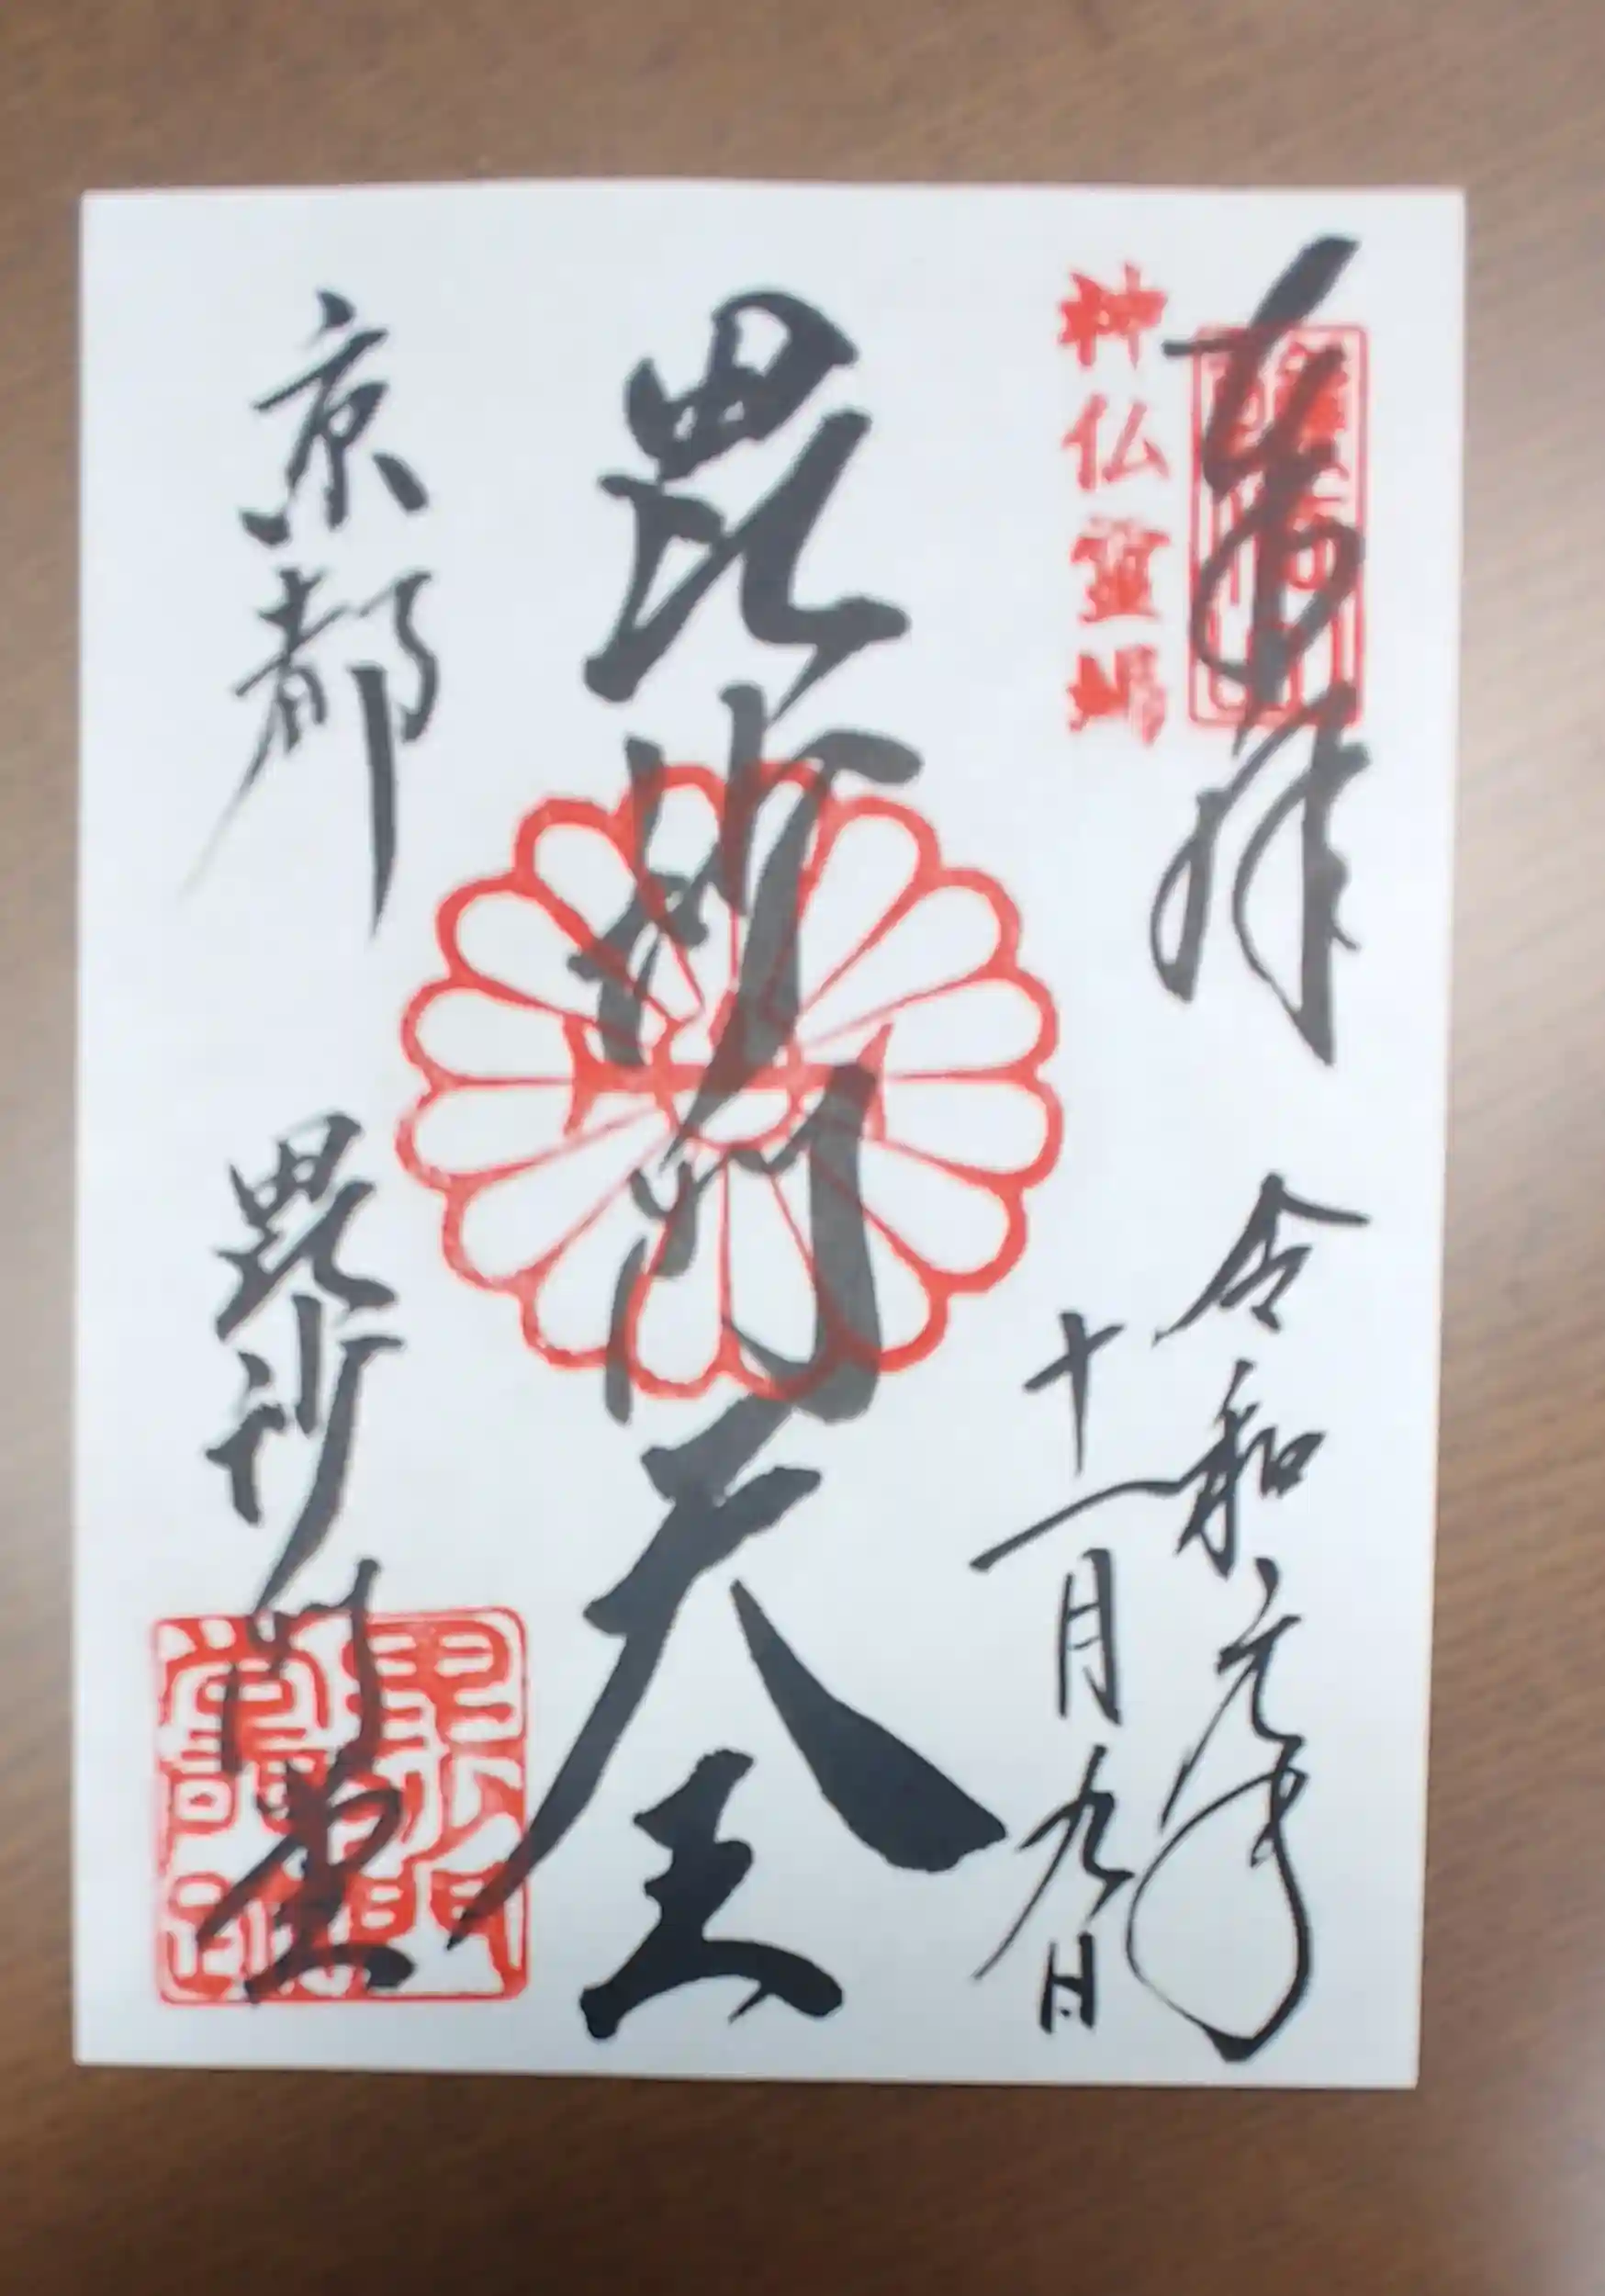 奉拝
神仏霊場
令和元年
十一月九日
毘沙門天王
京都
毘沙門堂